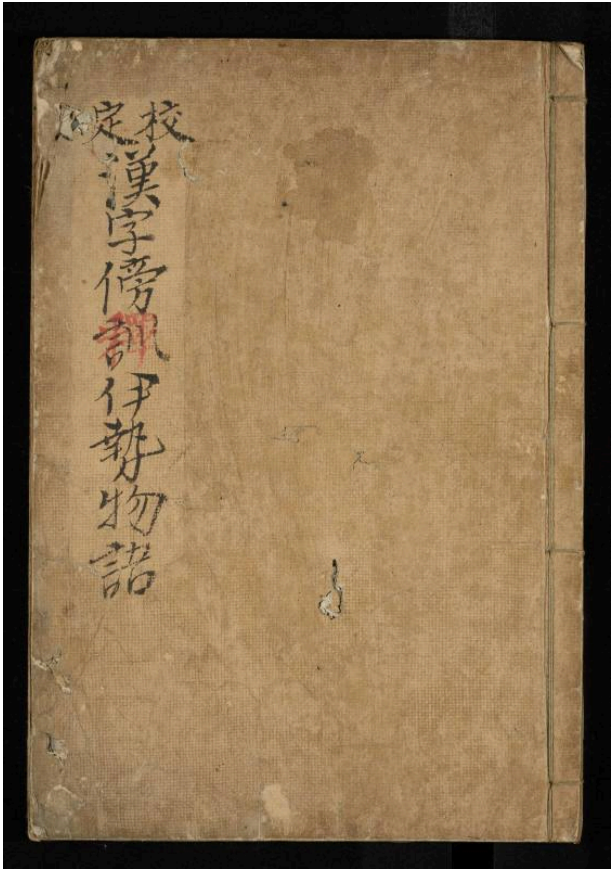 校定
漢字傍訓伊勢物語